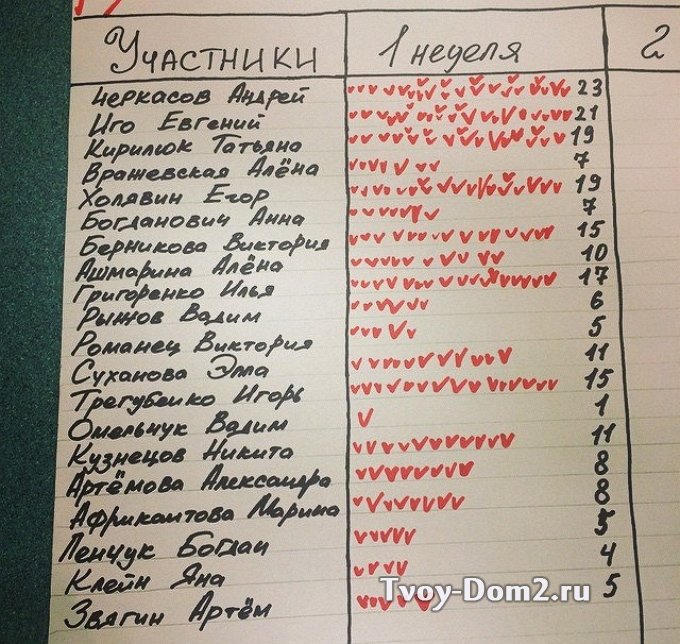 Участники 1 неделя 2
Черкасов Андрей 23
Иго Евгений 21
Кирилюк Татьяна 19
Вражевская Алёна 7
Холявин Егор 19
Богданович Анна 7
Берникова Виктория 15
Ашмарина Алёна 10
Григоренко Илья 17
Рыжов Вадим 6
Романец Виктория 5
Суханова Элла 11
Трегубенко Игорь 15
Омельчук Вадим 1
Кузнецов Никита 11
Артёмова Александра 8
Африкантова Марина 8
Ленчук Богдан 5
Клейн Яна 4
Звягин Артём 5
Tvoy-Dom2.ru